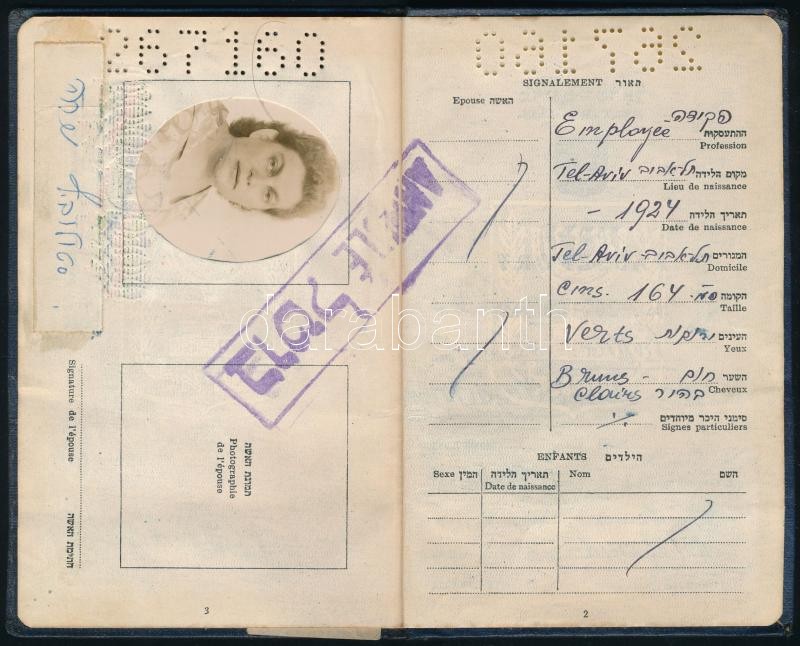 267160
SIGNALEMENT תאור
Epouse האשה
Employée פקידה
ההתעסקות
Profession
Tel-Aviv תל-אביב מקום הלידה
Lieu de naissance
- 1924 תאריך הלידה
Date de naissance
Tel-Aviv תל-אביב המגורים
Domicile
Cms. 164 ס״מ. הקומה
Taille
Verts ירוקות העינים
Yeux
Bruns - חום השער
Clairs בהיר Cheveux
סימני היכר מיוחדים
Signes particuliers
ENFANTS הילדים
Sexe המין תאריך הלידה Nom השם
Date de naissance
2
267160
תמונת האשה
Photographie
de l'épouse
Signature de l'épouse חתימת האשה
3
בוטל ANNULE
darabanth